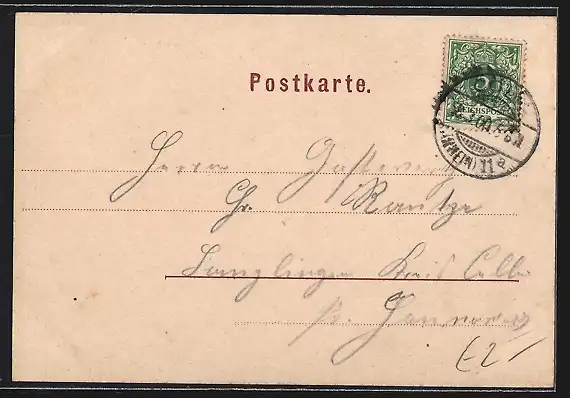 Postkarte.
5
REICHSPOST
(RHEIN) 11 e
Herrn Gastwirth
Ch. Rautze
Langlingen Kreis Celle
p. Hannover
E2